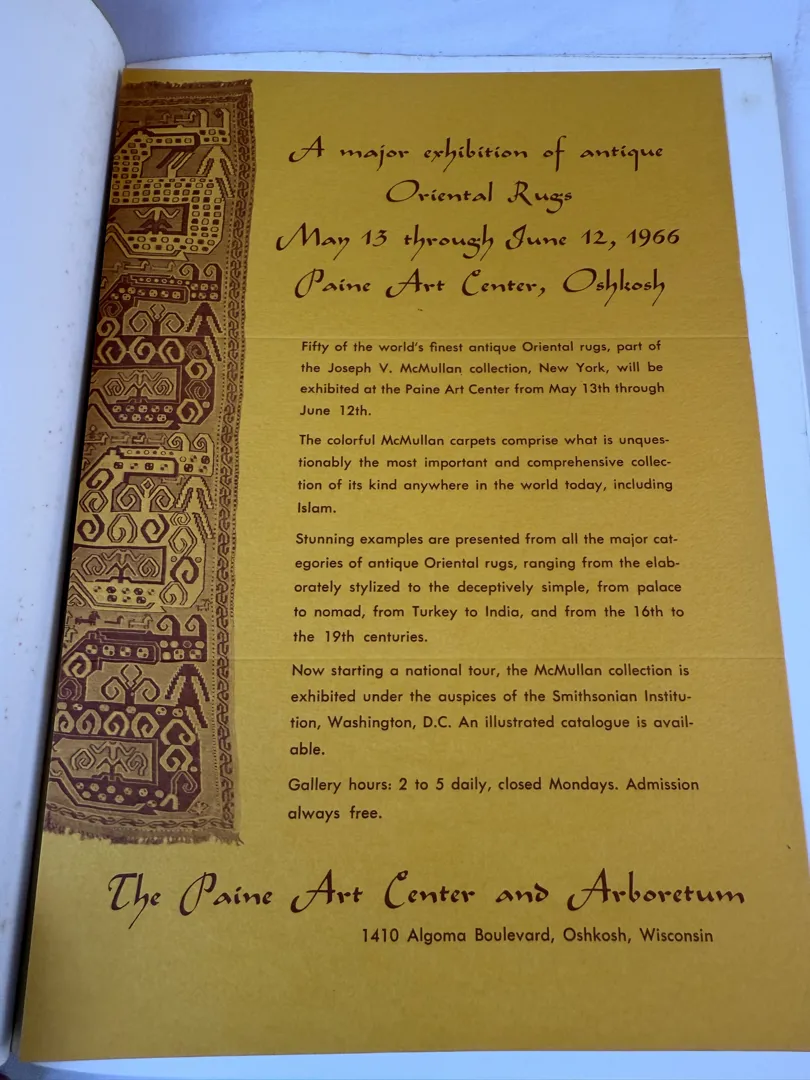 A major exhibition of antique
Oriental Rugs
May 13 through June 12, 1966
Paine Art Center, Oshkosh
Fifty of the world's finest antique Oriental rugs, part of
the Joseph V. McMullan collection, New York, will be
exhibited at the Paine Art Center from May 13th through
June 12th.
The colorful McMullan carpets comprise what is unques-
tionably the most important and comprehensive collec-
tion of its kind anywhere in the world today, including
Islam.
Stunning examples are presented from all the major cat-
egories of antique Oriental rugs, ranging from the elab-
orately stylized to the deceptively simple, from palace
to nomad, from Turkey to India, and from the 16th to
the 19th centuries.
Now starting a national tour, the McMullan collection is
exhibited under the auspices of the Smithsonian Institu-
tion, Washington, D.C. An illustrated catalogue is avail-
able.
Gallery hours: 2 to 5 daily, closed Mondays. Admission
always free.
The Paine Art Center and Arboretum
1410 Algoma Boulevard, Oshkosh, Wisconsin